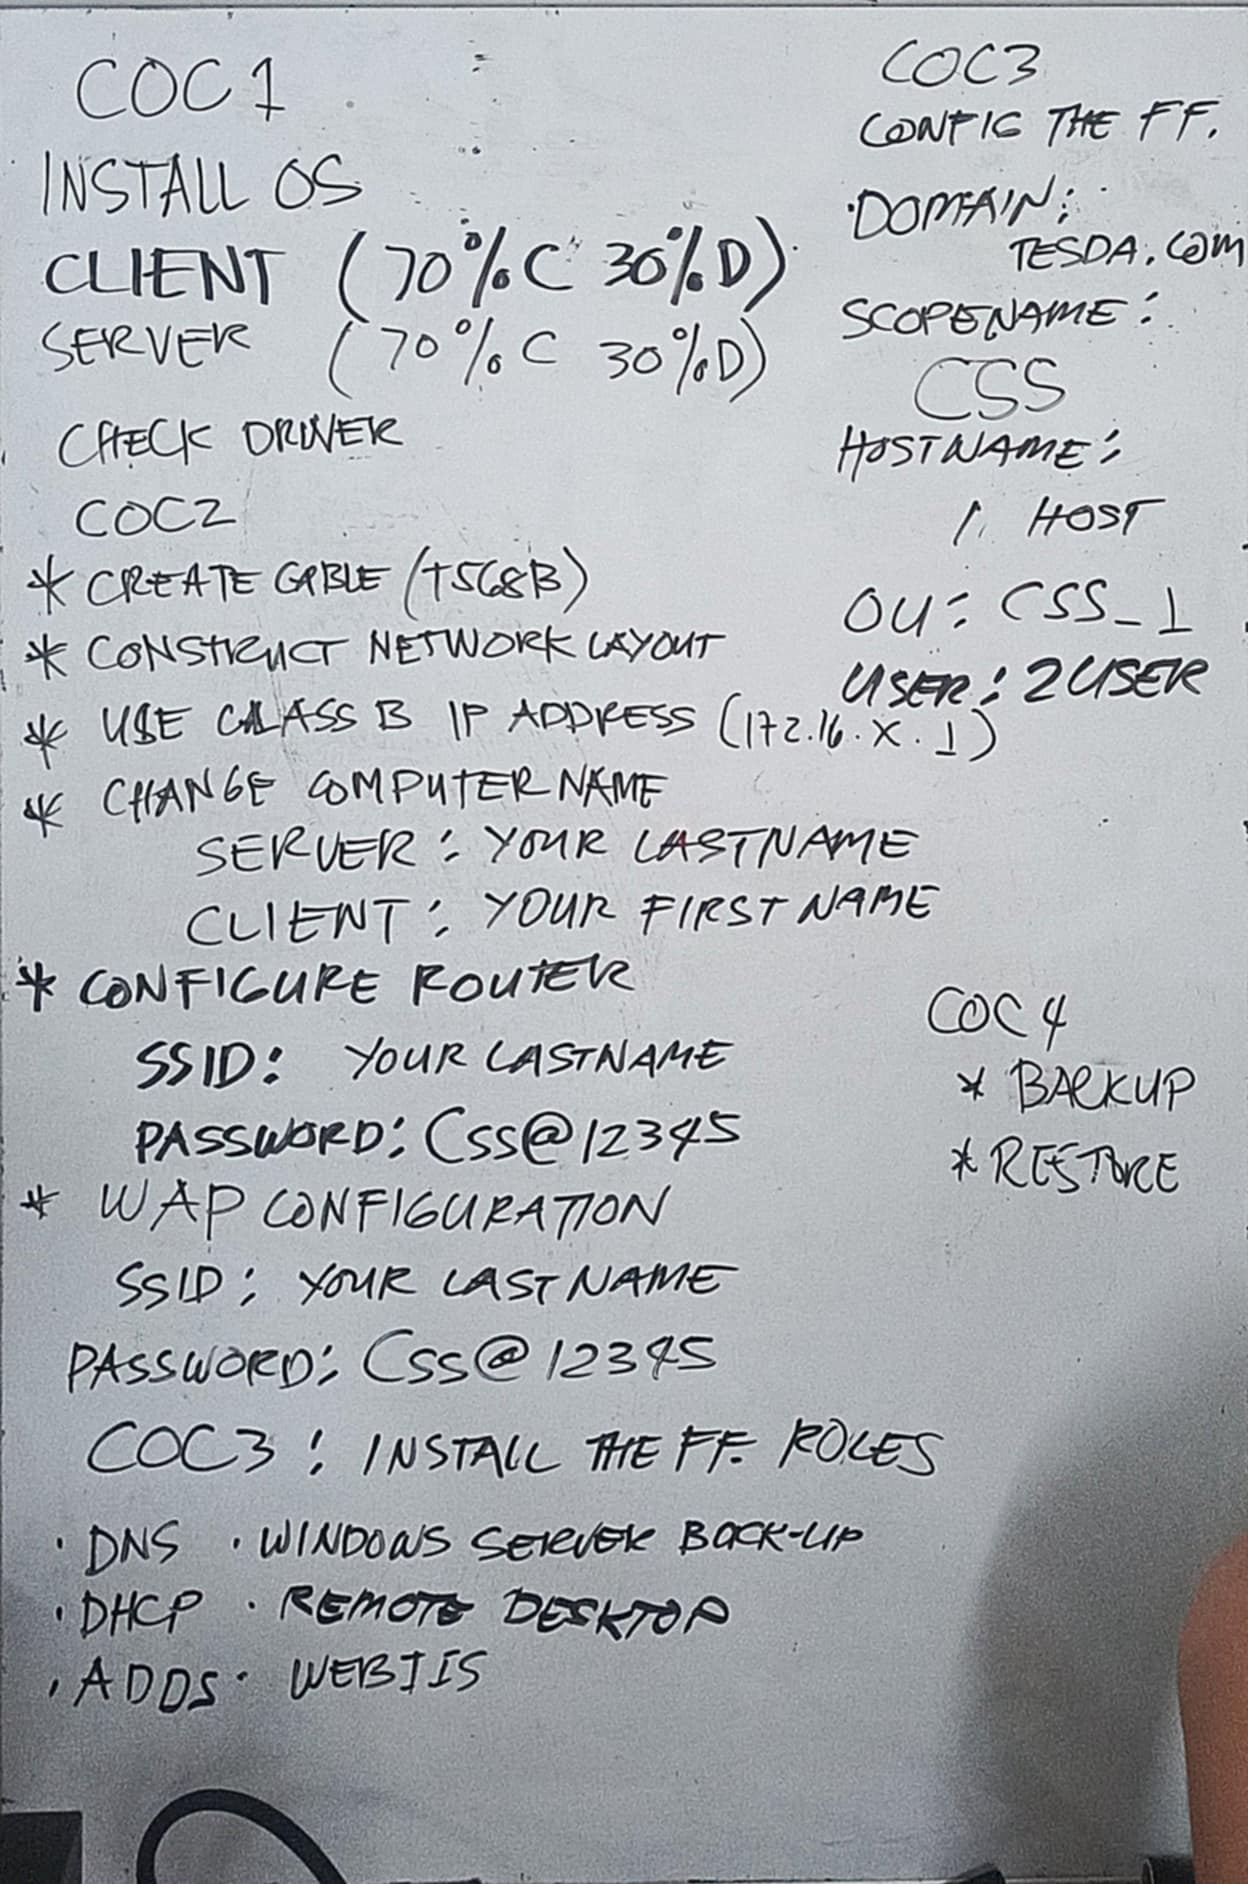 COC1
INSTALL OS
CLIENT (70% C 30% D)
SERVER (70% C 30% D)
CHECK DRIVER
COC2
* CREATE CABLE (T568B)
* CONSTRUCT NETWORK LAYOUT
* USE CLASS B IP ADDRESS (172.16.X.1)
* CHANGE COMPUTER NAME
SERVER: YOUR LASTNAME
CLIENT: YOUR FIRSTNAME
* CONFIGURE ROUTER
SSID: YOUR LASTNAME
PASSWORD: Css@12345
* WAP CONFIGURATION
SSID: YOUR LASTNAME
PASSWORD: Css@12345
COC3: INSTALL THE FF. ROLES
· DNS · WINDOWS SERVER BACK-UP
· DHCP · REMOTE DESKTOP
· ADDS · WEBIIS
COC3
CONFIG THE FF.
· DOMAIN:
TESDA.COM
SCOPENAME:
CSS
HOSTNAME:
1. HOST
OU: CSS_1
USER: 2USER
COC4
* BACKUP
* RESTORE